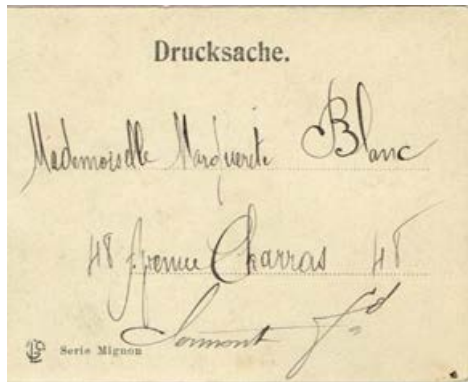 Drucksache.
Mademoiselle Marguerite Blanc
48 Avenue Charras 48
Serie Mignon